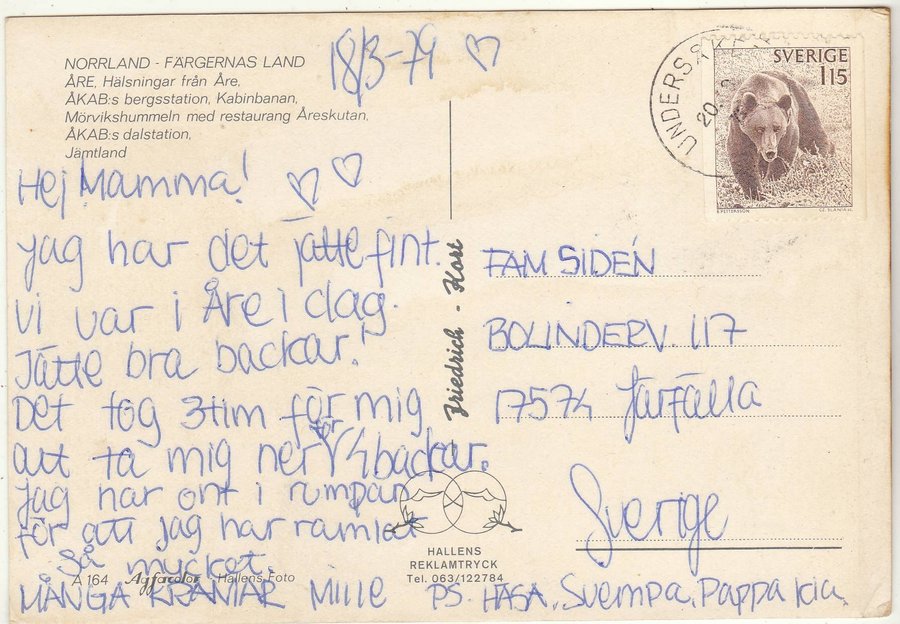 NORRLAND - FÄRGERNAS LAND
ÅRE, Hälsningar från Åre,
ÅKAB:s bergsstation, Kabinbanan,
Mörvikshummeln med restaurang Åreskutan,
ÅKAB:s dalstation,
Jämtland
18/3-79
Hej Mamma!
jag har det jättefint.
vi var i Åre i dag.
Jätte bra backar!
Det tog 3tim för mig
att ta mig ner för 1/4 backar.
jag har ont i rumpan
för att jag har ramlat
så mycket.
MÅNGA KRAMAR Mille
PS. HÄSA. Svempa, Pappa kia
A 164 Agfacolor Hallens Foto
Friedrich - Kort
HALLENS
REKLAMTRYCK
Tel. 063/122784
UNDERSÅKER
20
SVERIGE
115
FAM SIDÉN
BOLINDERV. 117
17574 Järfälla
Sverige